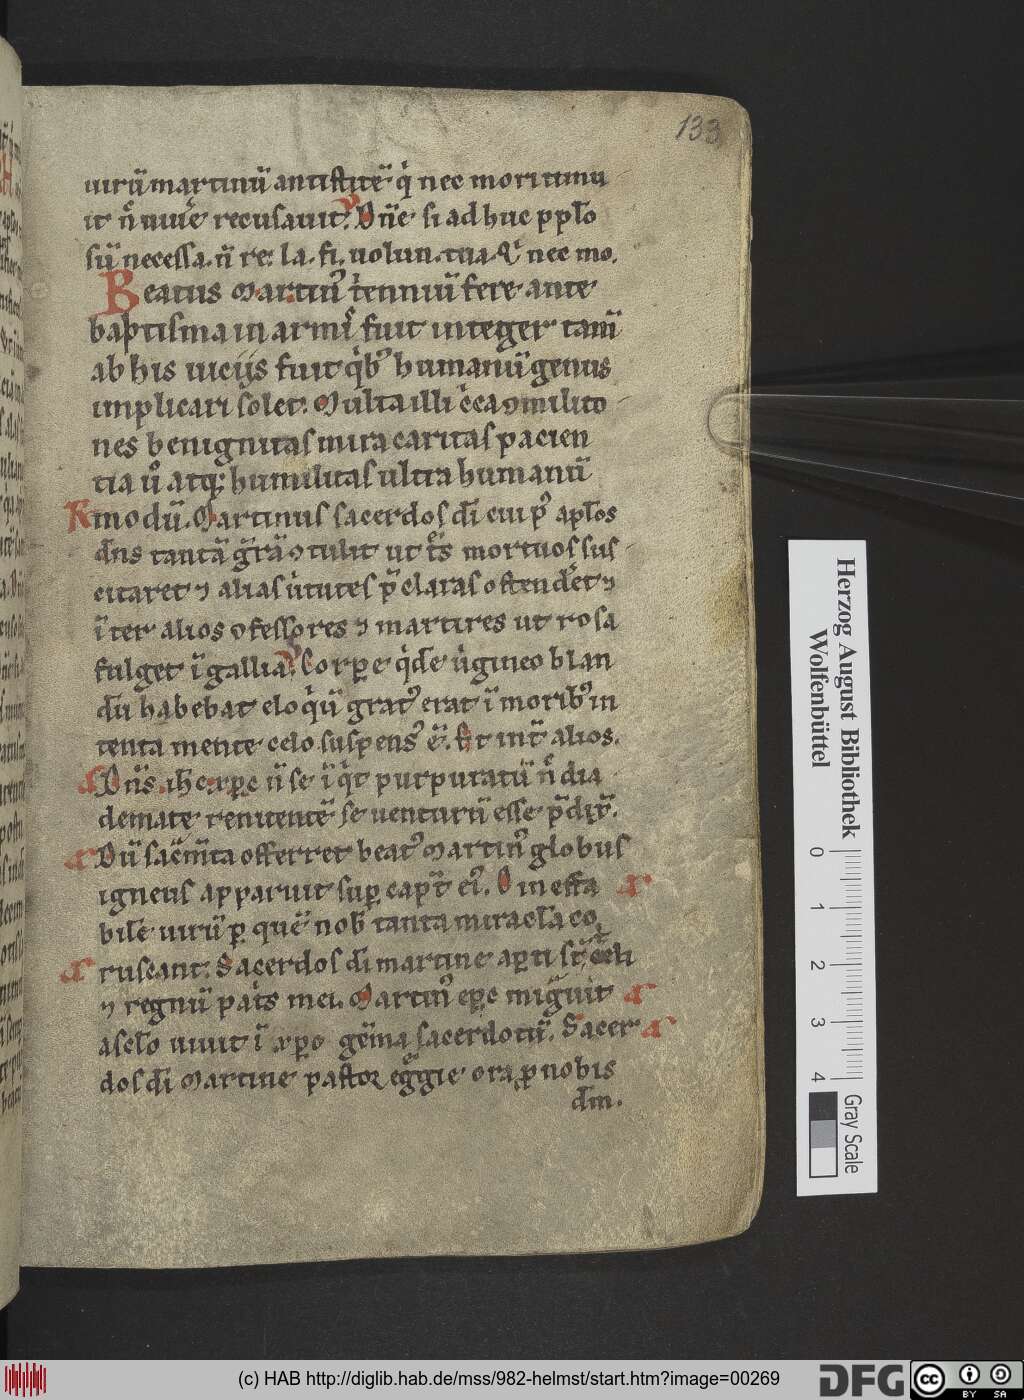 133
uirū martinū antistitē q̇ nec mori timu
it n̄ uiuẻ recusauit. V Dn̄e si adhuc p pl̄o
sū necessa. n̄ re. la. fi. uolun. tua. Q̇ nec mo.
Beatus Martin᷒ trienniū fere ante
baptisma in armı̉ fuit integer tam̄
ab his uiciis fuit qͥb᷒ humanū genus
implicari solet. Multa illi c̉ca ꝯmilito
nes benignitas mira caritas pacien
tia ů atq; humilitas ultra humanū
R modū. Martinus sacerdos dī cui p᷒ apl̄os
dn̄s tantā gr̄ā ꝯtulit ut tͤs mortuos sus
citaret ⁊ alias u̇tutes p̄claras ostendẻt ⁊
ī ter alios ꝯfessores ⁊ martires ut rosa
fulget ī gallia. V Corꝑe qͥdē u̇gineo blan
dū habebat eloqͥū grat᷒ erat ī morib᷒ in
tenta mente celo suspens᷒ ē. Et int̄ alios.
A Dn̄s ih̄c xp̄c n̄ se ī qͥt purpuratū n̄ dia
demate renitentē se uenturū esse p̄dix̄.
A Dū sac̄m̄ta offerret beat᷒ Martin᷒ globus
igneus apparuit suꝑ capt̄ ei᷒. O ineffa A
bilē uirū ꝑ quē nob̄ tanta miracl̄a co
A ruscant. Sacerdos dī martine aꝑti st̄ t᷒ celi
⁊ regnū patͥs mei. Martin᷒ ep̄c migͣuit A
a sclō uiuit ī xp̄o gēma sacerdotū. Sacer A
dos dī Martine pastor egͤgie ora ꝓ nobis
dm̄.
Herzog August Bibliothek
Wolfenbüttel
0 1 2 3 4
Gray Scale
(c) HAB http://diglib.hab.de/mss/982-helmst/start.htm?image=00269
DFG
cc
BY SA